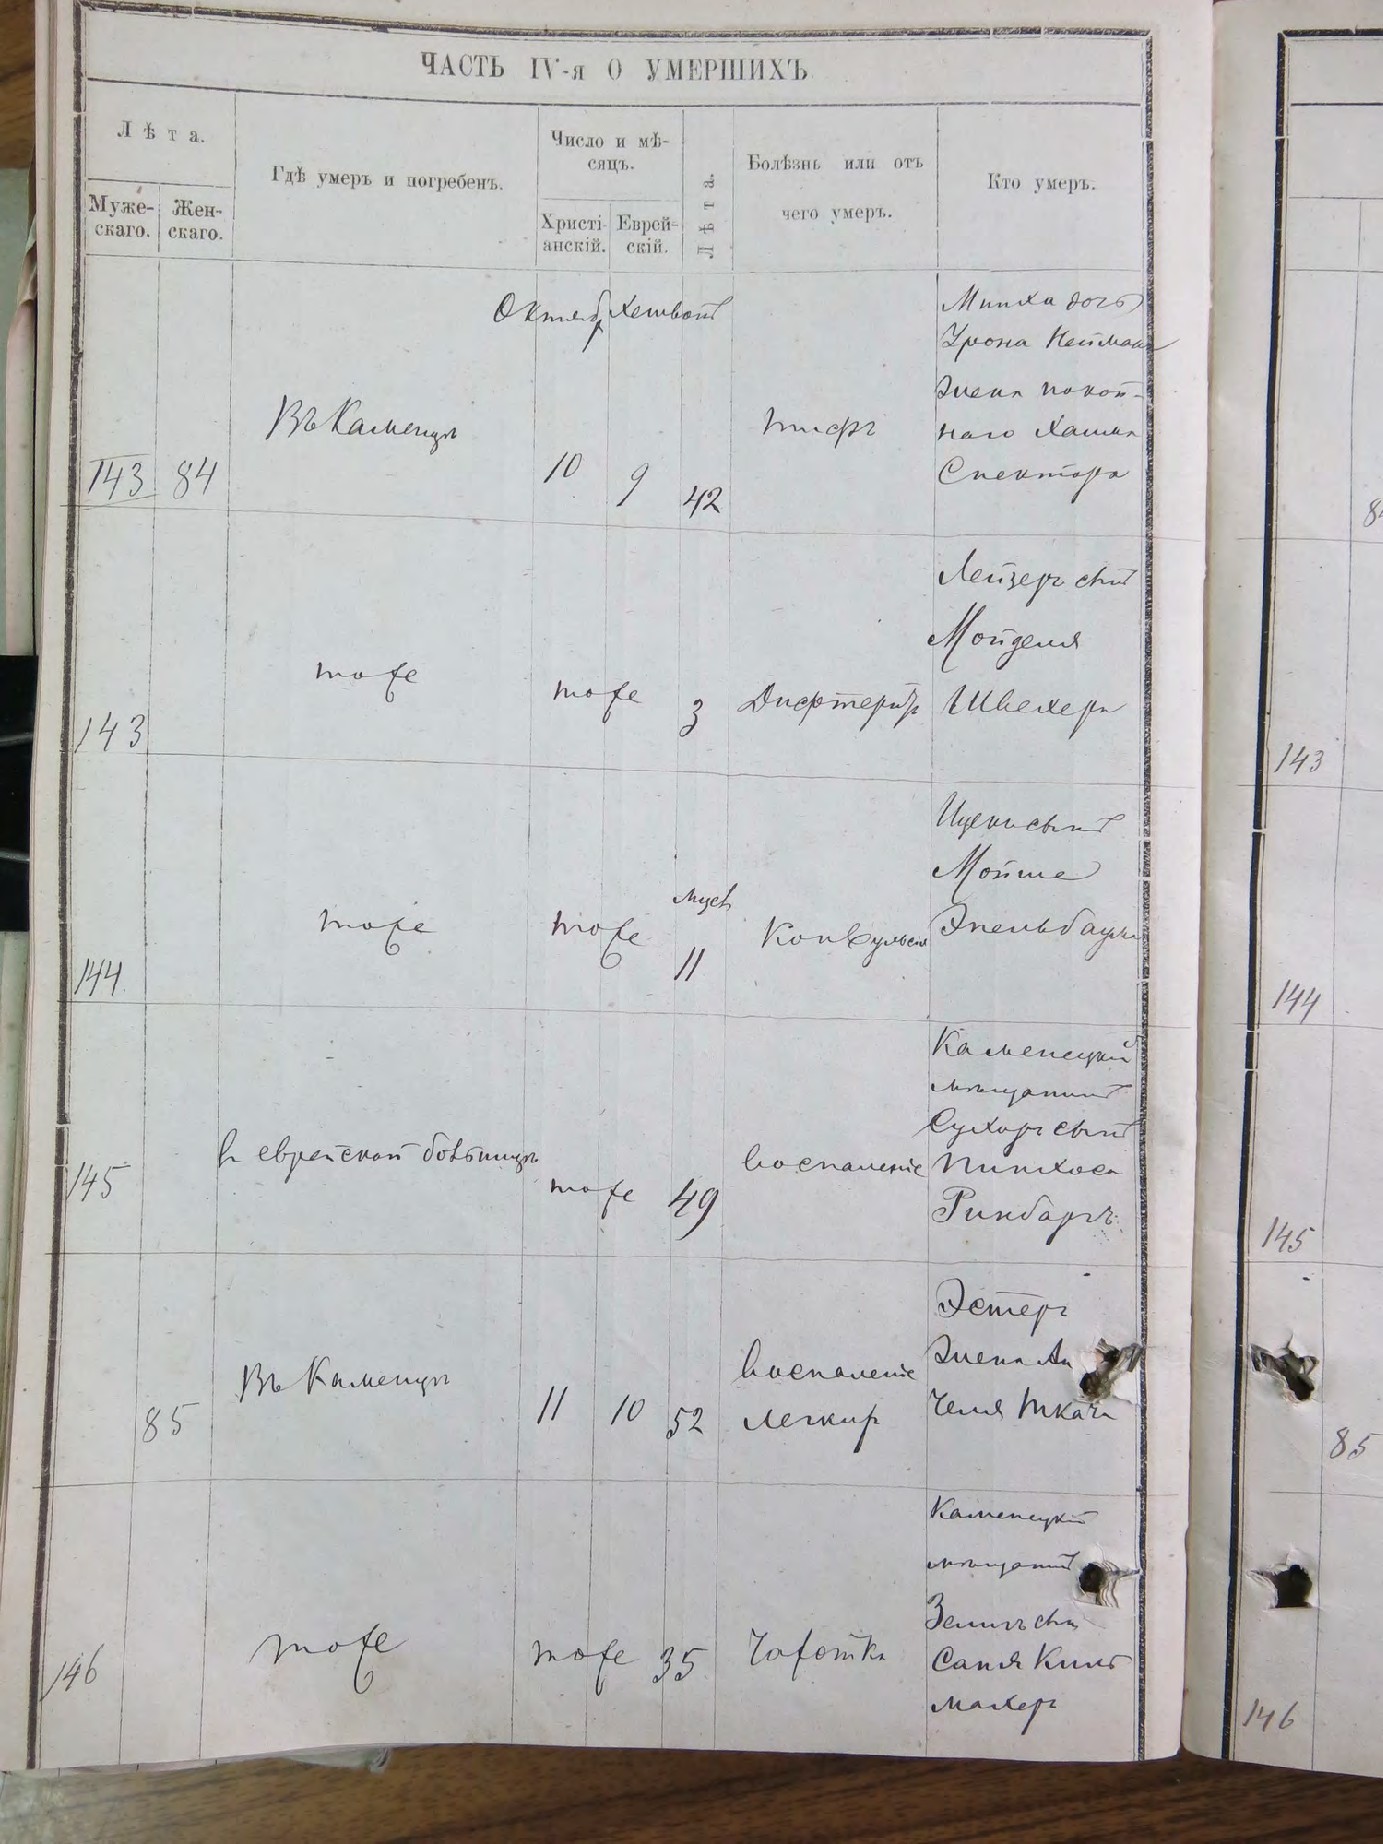 ЧАСТЬ IV-я О УМЕРШИХЪ
Лѣта.
Муже-
скаго.
Жен-
скаго.
Гдѣ умеръ и погребенъ.
Число и мѣ-
сяцъ.
Христі-
анскій.
Еврей-
скій.
Лѣта.
Болѣзнь или отъ
чего умеръ.
Кто умеръ.
Октяб. Хешвот
143 84
Въ Каменцѣ
10 9 42
тифъ
дочь
жена покой-
наго Хаима
Спектора
143
тоже
тоже
3
Дифтеритъ
Лейзеръ сынъ
Мойделя
Швехера
144
тоже
тоже
мѣс
11
Конвульсія
Ицекъ сынъ
Мойше
Эпельбаума
145
въ еврейской больницѣ
тоже 49
воспаленіе
Каменецкій
мѣщанинъ
Сухоръ сынъ
Пинхоса
Ринбаръ
85
Въ Каменцѣ
11 10 52
воспаленіе
легкихъ
Эстеръ
жена
Ткача
146
тоже
тоже 35
Чахотка
Каменецкій
мѣщанинъ
Зелигъ сынъ
махеръ
84
143
144
145
85
146